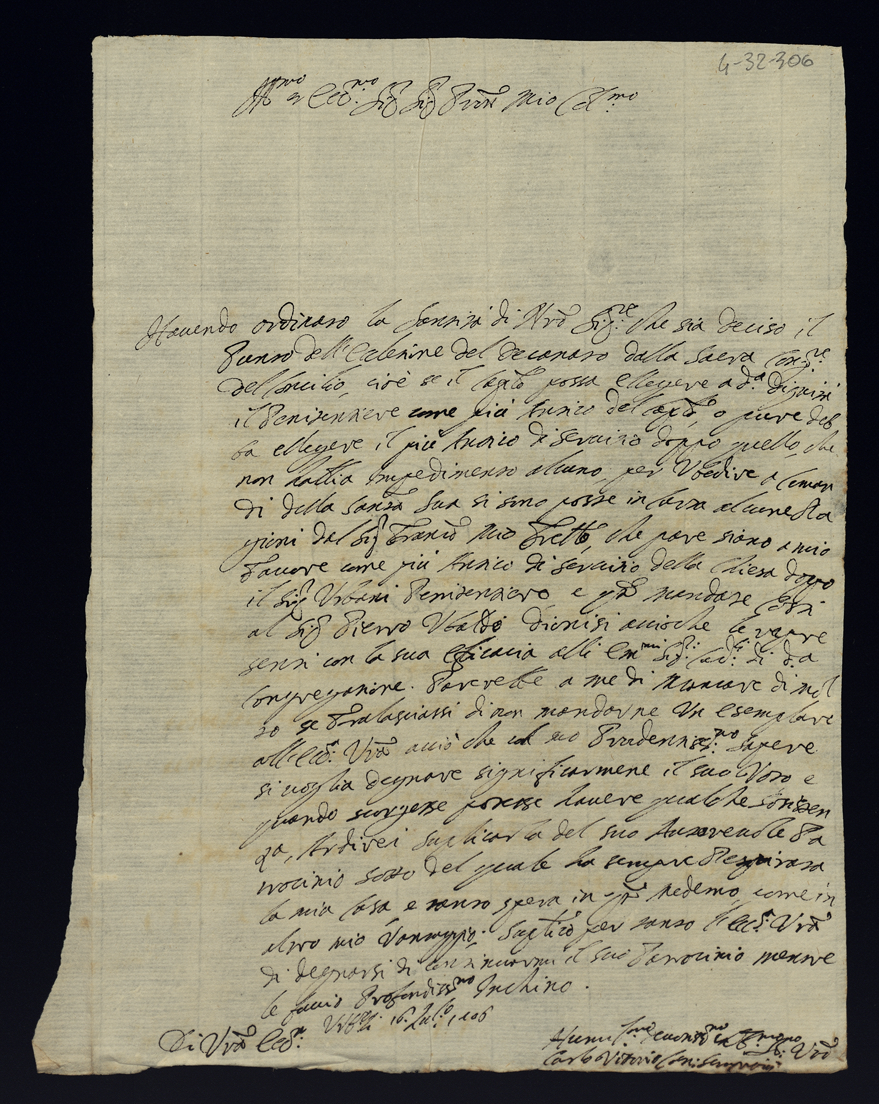 4-32-306
Ill.mo et Ecc.mo Sig.r Sig.r Pron Mio Col.mo
Havendo ordinato la Santità di Nro Sig.re che sia deciso il
Punto dell'Eletione del Decanato dalla Sacra Cong.ne
del Concilio, cioè se il Caplo possa ellegere a d.a Dignità
il Penitentiere come più Antico del Caplo, o pure deb
ba ellegere il più Antico di servitio doppo quello, che
non habbia impedimento alcuno, per Ubedire a Coman
di della Santà Sua si sono posse in carta alcune Ra
gioni dal Sig.r Franco Mio Frello, che pare siano a mio
Favore come più Antico di servitio della Chiesa doppo
il Sig.r Urbani Penitentiero, e p mandate
al Sig.r Pietro Ubaldo Dionisi acciò che le rapre
senti con la sua Eficacia alli Em.mi Sig.ri Card.li di d.a
Congregatione. Parerebbe a me di Mancare di mol
to se tralasciassi di non mandarne Un esemplare
all'Ecc.a Vra acciò che col suo Prudentiss.mo Sapere
si voglia degnare significarmene il suo Voto e
quando scorgesse potesse havere qualche
za, Ardirei suplicarla del suo Autorevole Pa
trocinio sotto del quale ha sempre Respirata
la mia Casa e tanto spera in q Medemo, come in
altro mio Vantaggio. Suplico per tanto l'Ecc.a Vra
di degnarsi di continuarmi il suo Patrocinio mentre
le faccio Profondiss.mo Inchino.
Di Vra Ecc.a 16. 1706
Vro
Carlo Vittorio